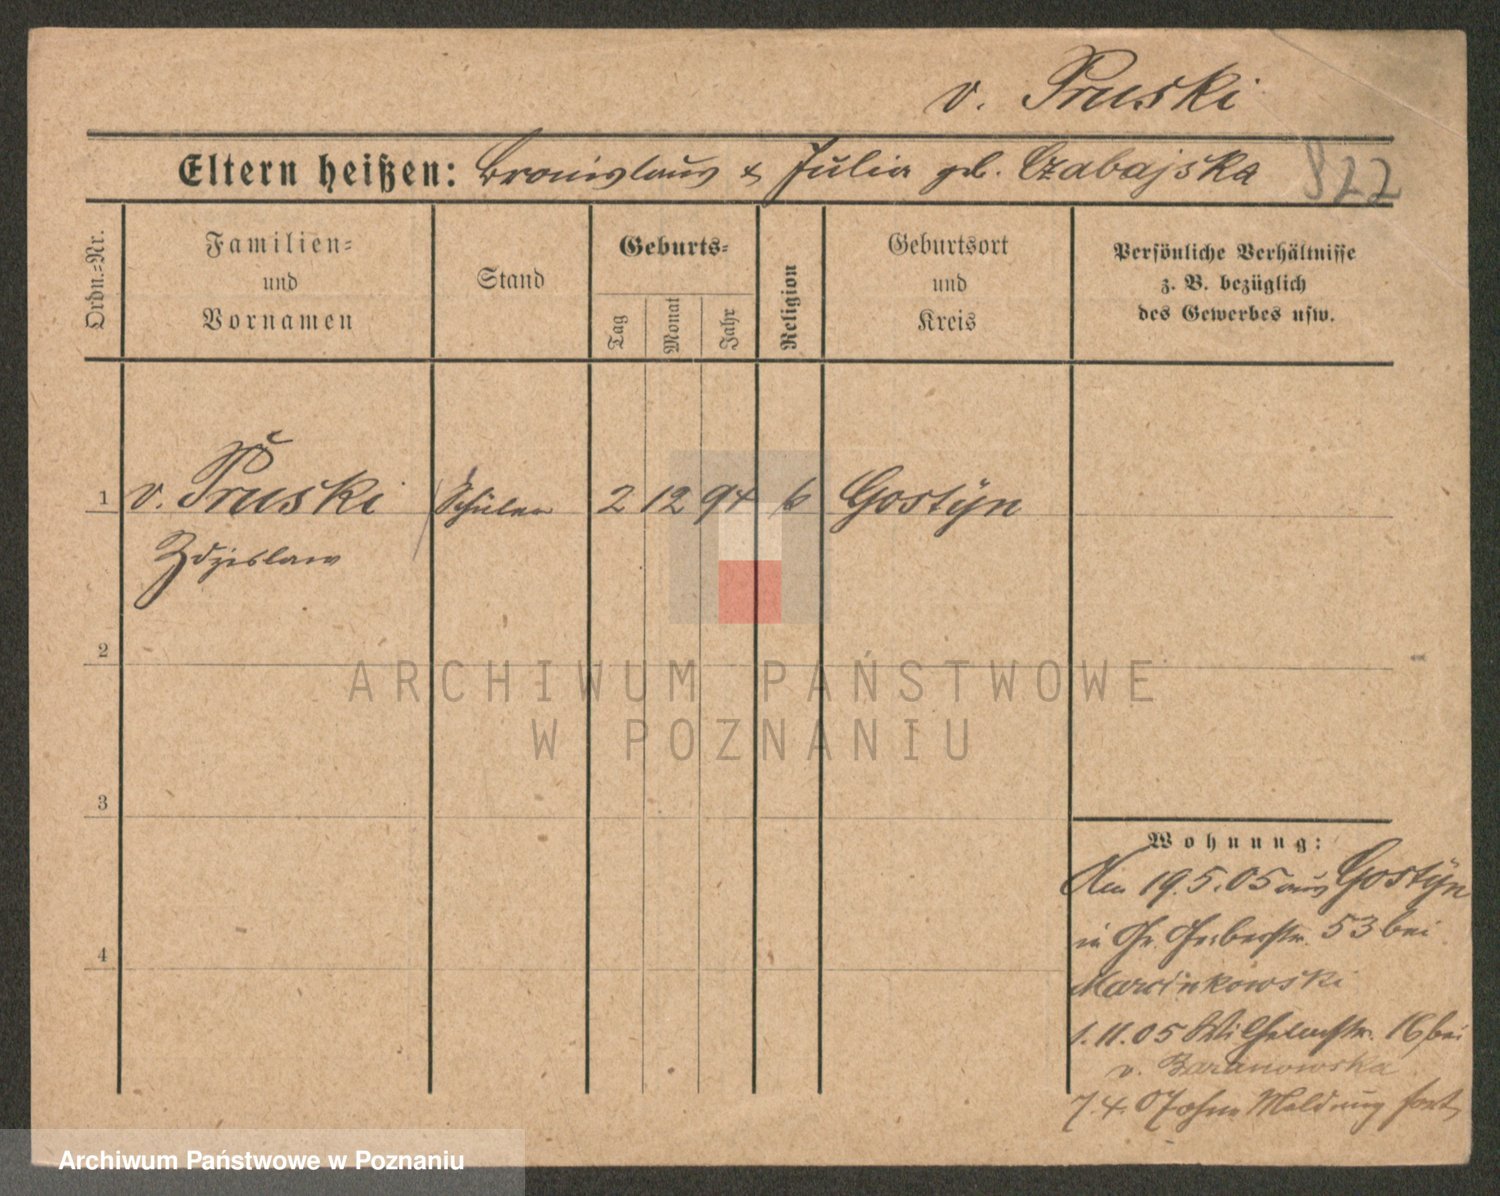 v. Pruski
Eltern heißen: Bronislaus & Julia geb. Czabajska 822
Ordn.=Nr.
Familien=
und
Vornamen
Stand
Geburts=
Tag
Monat
Jahr
Religion
Geburtsort
und
Kreis
Persönliche Verhältnisse
z. B. bezüglich
des Gewerbes usw.
1 v. Pruski Schüler 2 12 94 k Gostyn
Zdzislaw
2
3
4
Wohnung:
Am 19.5.05 aus Gostyn
in Gr. Gerberstr. 53 bei
Marcinkowski
1.11.05 Wilhelmstr. 16 bei
v. Baranowska
7.4.07 ohne Meldung fort
ARCHIWUM PAŃSTWOWE
W POZNANIU
Archiwum Państwowe w Poznaniu